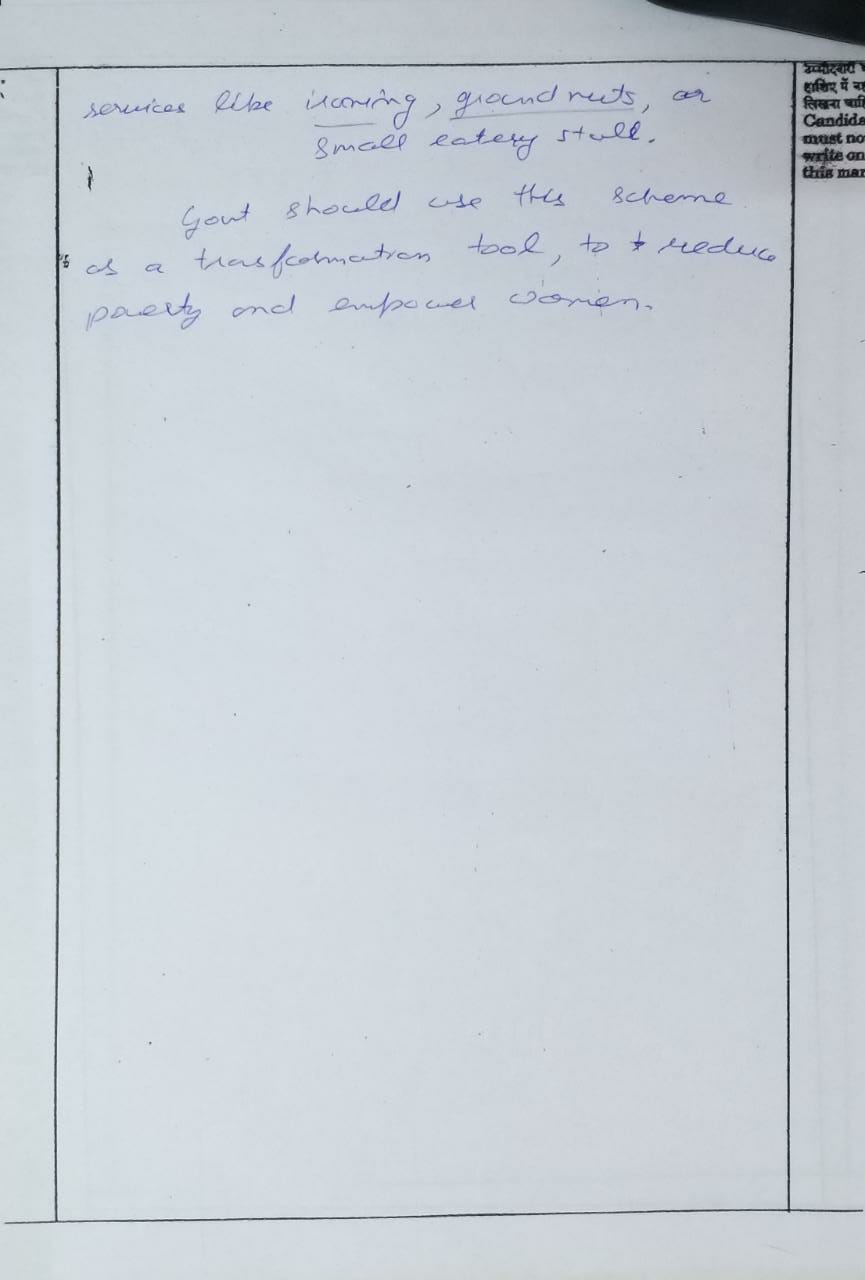 services like ironing, groundnuts, or
small eatery stall.
Govt should use this scheme
as a trasformation tool, to reduce
poverty and empower women.
उम्मीदवारों
हाशिए में
लिखना
Candida
must no
write on
this mar